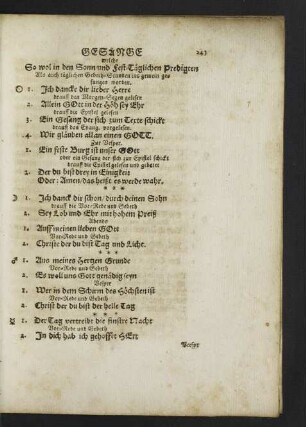 GESÄNGE 243
welche
So wol in den Sonn und Fest-Täglichen Predigten
Als auch täglichen Gebeths-Stunden ins gemein ge-
sungen werden.
☉ 1. Ich dancke dir lieber Herre
drauf das Morgen-Segen gelesen
2. Allein GOtt in der Höh sey Ehr
drauf die Epistel gelesen
3. Ein Gesang der sich zum Texte schickt
drauf das Evang. vorgelesen.
4. Wir gläuben all an einen GOTT.
Zur Vesper.
1. Ein feste Burg ist unser GOtt
oder ein Gesang der sich zur Epistel schickt
drauf die Epistel gelesen und gebetet
2. Der du bist drey in Einigkeit
Oder: Amen/das heißt es werde wahr.
* * *
☽ 1. Ich danck dir schon/durch deinen Sohn
drauf die Vor-Rede und Gebeth
2. Sey Lob und Ehr mit hohem Preiß
Abends
1. Auff meinen lieben GOtt
Vor-Rede und Gebeth
2. Christe der du bist Tag und Licht.
* * *
♂ 1. Aus meines Hertzen Grunde
Vor-Rede und Gebeth
2. Es woll uns Gott genädig seyn
Vesper
1. Wer in dem Schutz des Höchsten ist
Vor-Rede und Gebeth
2. Christ der du bist der helle Tag
* * *
☿ 1. Der Tag vertreibt die finstre Nacht
Vor-Rede und Gebeth
2. In dich hab ich gehoffet HErr
Vesper